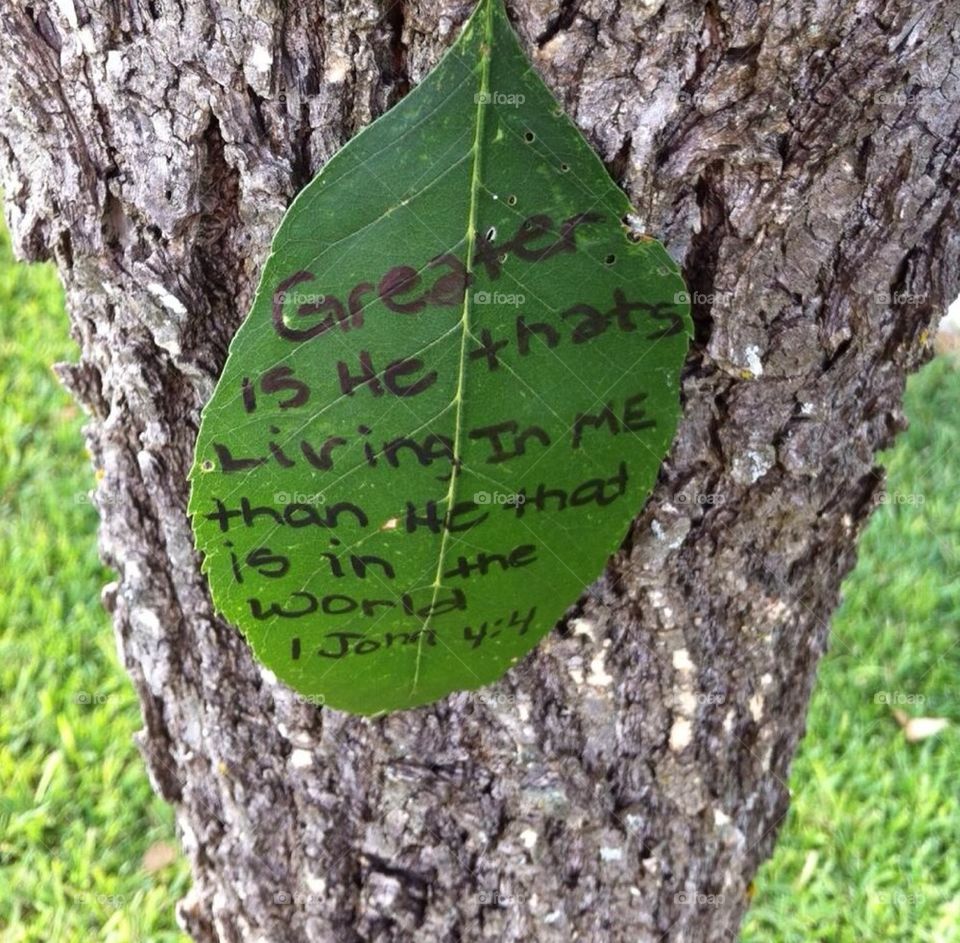 Greater
is He thats
Living In ME
than He that
is in the
World
1 John 4:4